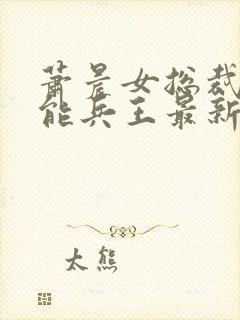 萧晨女总裁
能兵王最新
太熊